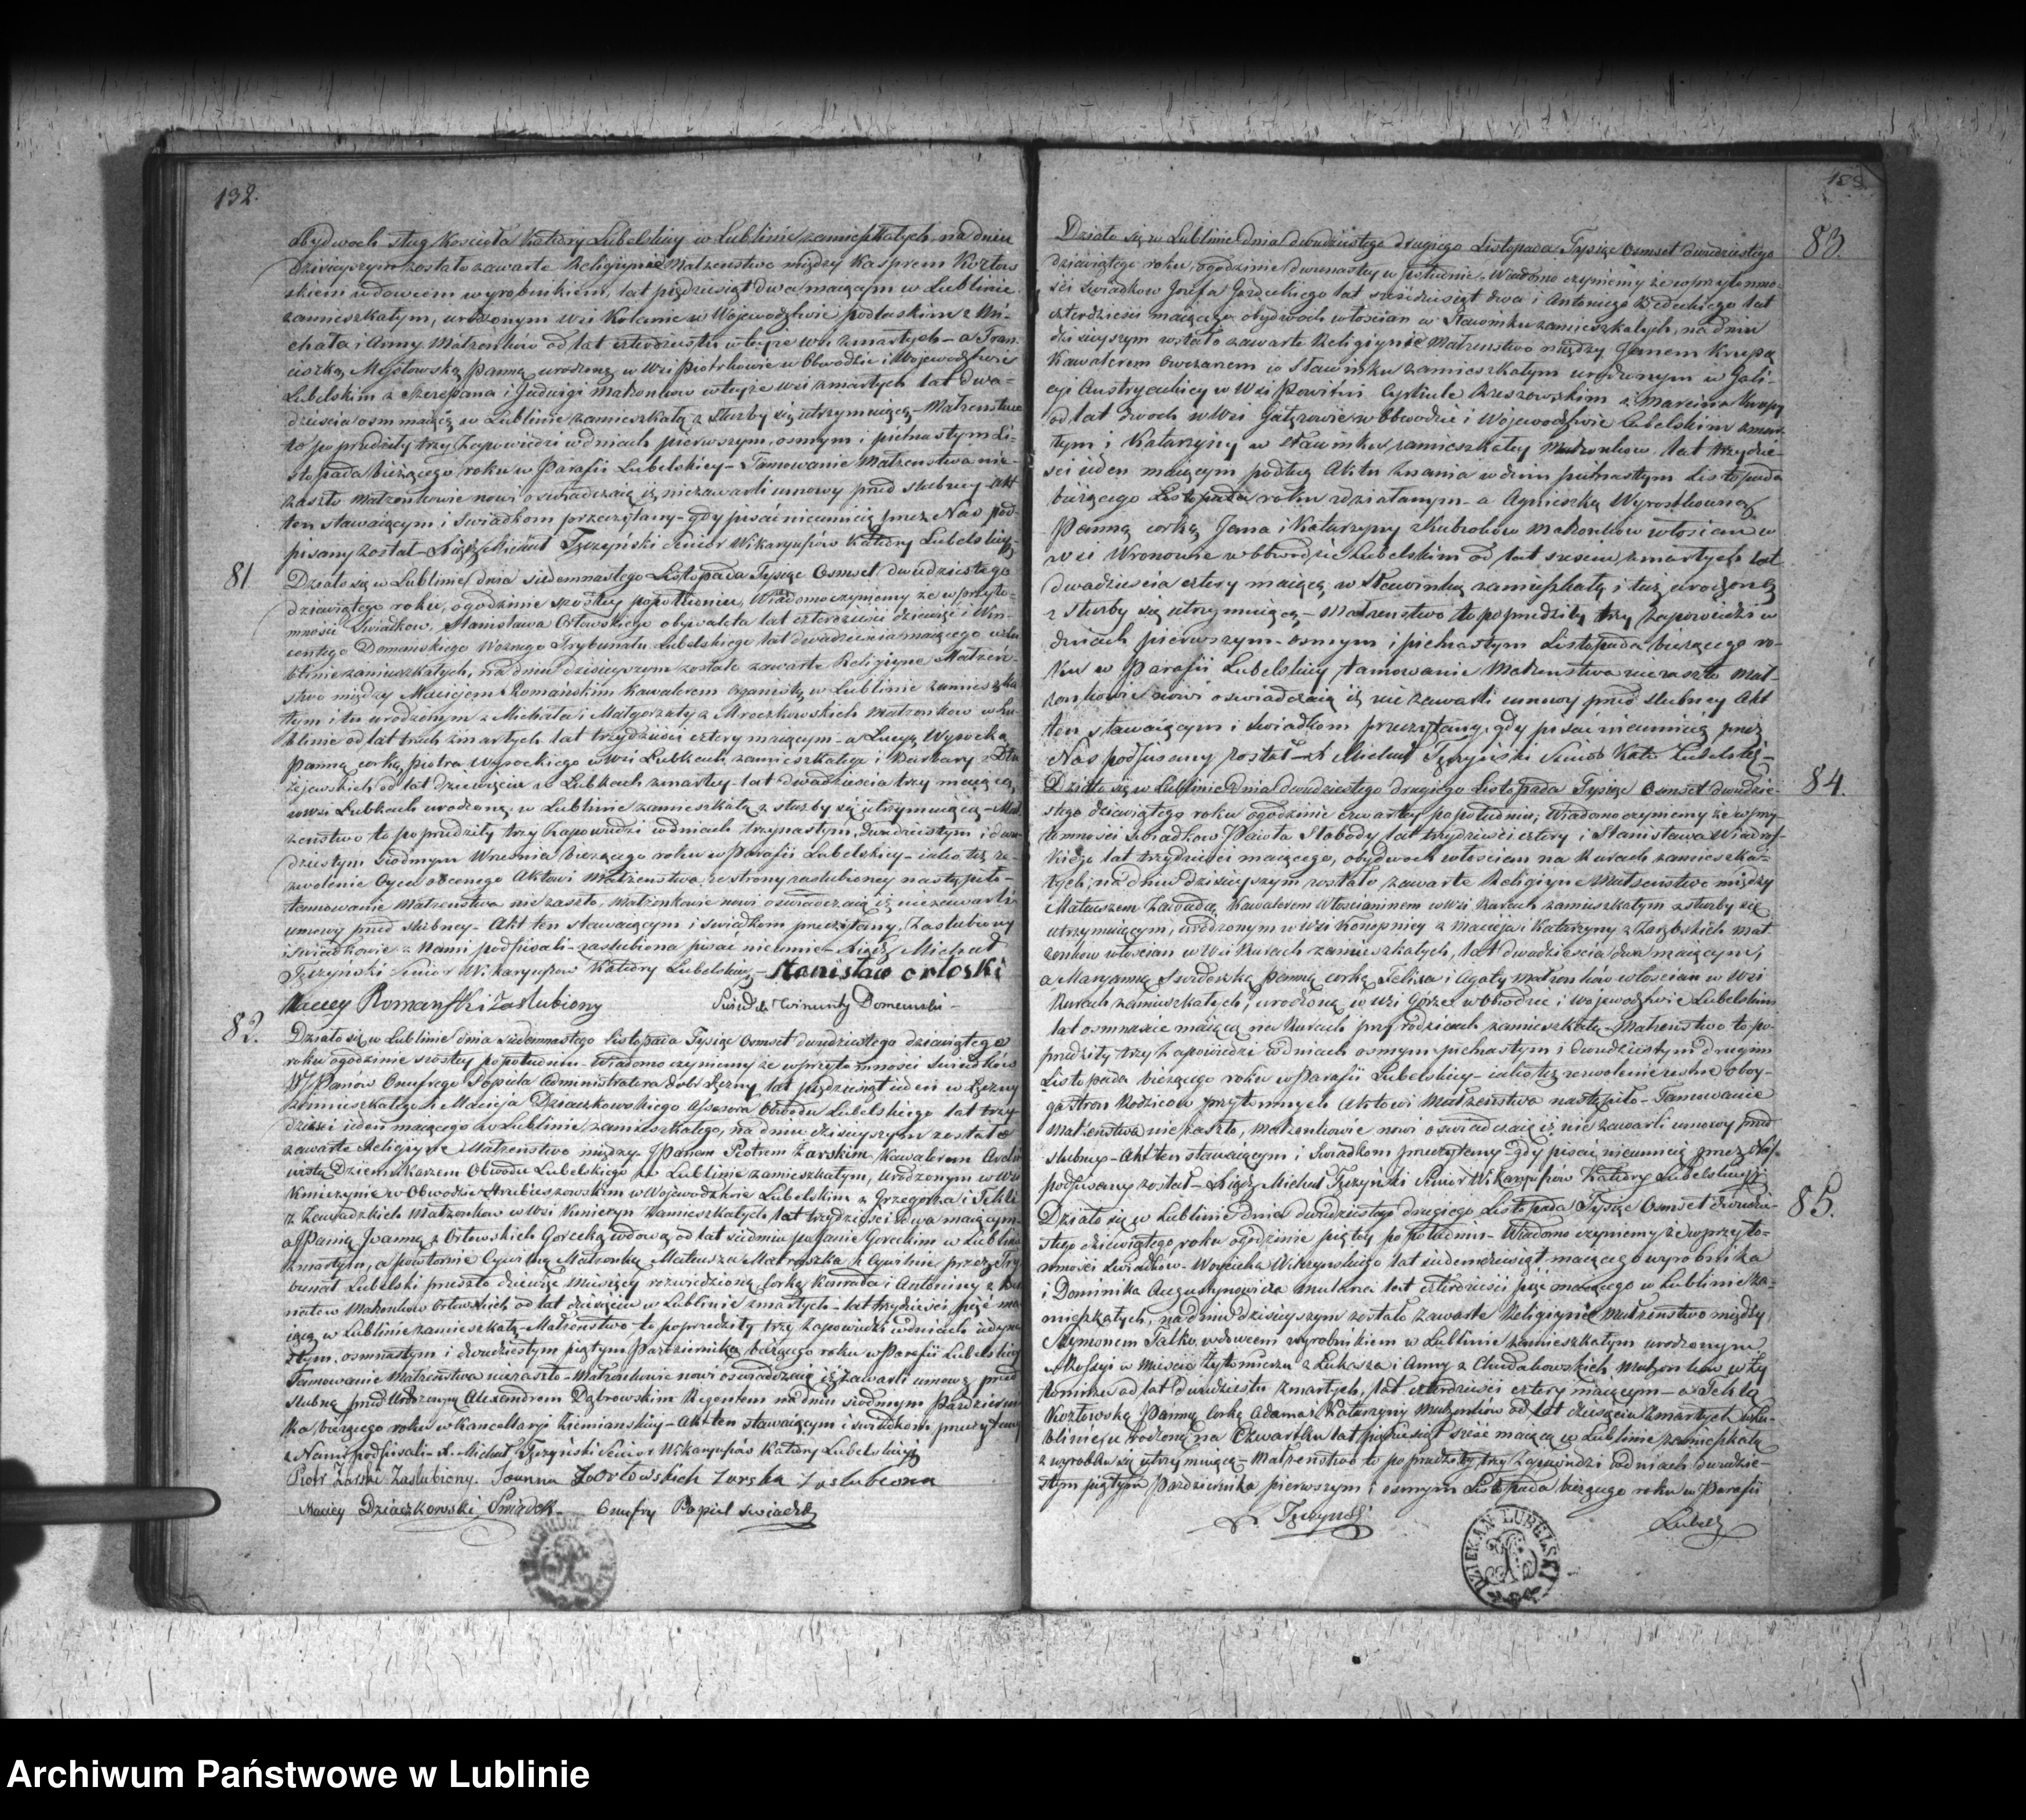 132.
obydwoch sług Kościoła Katedry Lubelskiey w Lublinie zamieszkałych, na dniu
dzisieyszym zostało zawarte Religiyne Małżenstwo między Kasprem Kozłow
skiem wdowcem wyrobnikiem, lat pięćdziesiąt dwa maiącym w Lublinie
zamieszkałym, urodzonym w Wsi Kolanie w Wojewodztwie podlaskim z Mi-
chała i Anny Małżonkow od lat czterdziestu w teyże wsi zmarłych - a Fran-
ciszką Mysłowską Panną urodzoną w Wsi Piotrkowie w Obwodzie i Wojewodztwie
Lubelskim z Szczepana i Jadwigi Małżonkow w teyże wsi zmarłych lat dwa-
dzieścia osm maiącą w Lublinie zamieszkałą z służby się utrzymuiącą - Małżenstwo
to poprzedziły trzy Zapowiedzi w dniach pierwszym, osmym i piętnastym Li-
stopada bieżącego roku w Parafii Lubelskiey - Tamowanie Małżenstwa nie-
zaszło Małżonkowie nowi oświadczaią iż niezawarli umowy przed slubney Akt
ten stawaiącym i Swiadkom przeczytany - gdy pisać nieumieią przez Nas pod-
pisany został - Xiądz Michał Tęczyński Senior Wikaryuszów Katedry Lubelskiey
81.
Działo się w Lublinie dnia siedemnastego Listopada Tysiąc Osmset dwudziestego
dziewiątego roku, o godzinie szostey popołudniu, Wiadomo czyniemy że w przyto-
mności Swiadkow, Stanisława Orłowskiego obywatela lat czterdzieści dziewięć i Win-
centego Domanskiego Woznego Trybunału Lubelskiego lat dwadzieścia maiącego w Lu
blinie zamieszkałych, na dniu dzisieyszym zostało zawarte Religiyne Małżeń-
stwo między Macieiem Romańskim Kawalerem Organistą w Lublinie zamieszka
łym i tu urodzonym z Michała i Małgorzaty z Mroczkowskich Małżonkow w Lu-
blinie od lat trzech zmarłych lat trzydzieści cztery maiącym - a Łucyą Wysocką
Panną corką Piotra Wysockiego w Wsi Lubkach zamieszkałego i Barbary z Dłu
żejewskich od lat dziewięciu w Lubkach zmarłey - lat dwadzieścia trzy maiącą
w Wsi Lubkach urodzoną, w Lublinie zamieszkałą z służby się utrzymuiącą - Mał
żenstwo to poprzedziły trzy Zapowiedzi w dniach trzynastym, dwudziestym i dwu
dziestym siodmym Wrzesnia bieżącego roku w Parafii Lubelskiey - iako też ze-
zwolenie Oyca obecnego Aktowi Małżenstwa, ze strony zaslubioney nastąpiło -
tamowanie Małżenstwa nie zaszło, Małżonkowie nowi oswiadczaią iż niezawarli
umowy przed slubney - Akt ten stawaiącym i swiadkom przeczytany, Zaslubiony
i swiadkowie z Nami podpisali - zaslubiona pisać nieumie - Xiądz Michał
Tęczynski Senior Wikaryuszow Katedry Lubelskiey - Stanisław orłoski
Maciey Romanski Zaslubiony Swiadek Wincenty Domanski -
82.
Działo się w Lublinie dnia siedemnastego Listopada Tysiąc Osmset dwudziestego dziewiątego
roku o godzinie szostey popołudniu - Wiadomo czyniemy że w przytomności Swiadkow
W Panów Onufrego Popiela Administratora dobr Łęczny lat pięćdziesiąt ieden w Łęczny
zamieszkałego i Macieja Dziaczkowskiego Assesora Obwodu Lubelskiego lat trzy
dzieści ieden maiącego w Lublinie zamieszkałego, na dniu dzisieyszym zostało
zawarte Religiyne Małżenstwo między JPanem Piotrem Zarskim Kawalerem
Dziennikarzem Obwodu Lubelskiego w Lublinie zamieszkałym, urodzonym w Wsi
Kmiczynie w Obwodzie Hrubieszowskim w Wojewodztwie Lubelskim z Grzegorza i Tekli
z Zawadzkich Małżonkow w Wsi Kmiczyn Zamieszkałych lat trzydzieści dwa maiącym
a JPanią Joanną z Orłowskich Gorecką wdową od lat siedmiu po Janie Goreckim w Lublinie
zmarłym, a powtornie Cywilną Małżonką Mateusza Matraszka i Cywilnie przez Try
bunał Lubelski przeszło dziewięć miesięcy rozwiedzioną, Corką Konrada i Antoniny z
natow Małżonkow Orłowskich od lat dziesięciu w Lublinie zmarłych - lat trzydzieści pięć ma
iącą w Lublinie zamieszkałą - Małżenstwo to poprzedziły trzy Zapowiedzi w dniach iedyna
stym, osmnastym i dwudziestym piątym Października bieżącego roku w Parafii Lubelskiey
Tamowanie Małżenstwa niezaszło - Małżonkowie nowi oswiadczaią iż zawarli umowę przed
slubną przed Urodzonym Alexandrem Dąbrowskim Rejentem na dniu siodmym Październi
ka bieżącego roku w Kancellaryi Ziemianskiey - Akt ten stawaiącym i swiadkom przeczytany
z Nami podpisali - X. Michał Tęczynski Senior Wikaryuszow Katedry Lubelskiey
Piotr Zarski Zaslubiony. Joanna Z Orłowskich Zarska Zaslubiona
Maciey Dziaczkowski Swiadek - Onufry Popiel swiadek
83.
Działo się w Lublinie dnia dwudziestego drugiego Listopada Tysiąc Osmset dwudziestego
dziewiątego roku, o godzinie dwunastey w południe, Wiadomo czyniemy że w przytomno-
ści swiadkow Jozefa lat sześćdziesiąt dwa i Antoniego lat
czterdzieści maiącego obydwoch włoscian w Sławinku zamieszkałych, na dniu
dzisieyszym zostało zawarte Religiyne Małżenstwo między Janem Krupą
Kawalerem Owczarzem w Sławinku zamieszkałym urodzonym w Gali-
cyi Austryackiey w Wsi Cyrkule Rzeszowskim z Marcina Krupy
od lat dwoch w Wsi Gałęzowie w Obwodzie i Wojewodztwie Lubelskim zmar-
łym i Katarzyny w Sławinku zamieszkałey Małżonkow, lat trzydzie-
ści ieden maiącym podług Aktu Znania w dniu piętnastym Listopada
bieżącego Listopada roku zdziałanym - a Agnieszką Wyrostkowną
Panną corką Jana i Katarzyny z Kubrakow Małżonkow włoscian w
wsi Wronowie w Obwodzie Lubelskim od lat szesciu zmarłych lat
dwadzieścia cztery maiącą w Sławinku zamieszkałą i tuż urodzoną
z służby się utrzymuiącą - Małżenstwo to poprzedziły trzy Zapowiedzi w
dniach pierwszym - osmym i piętnastym Listopada bieżącego ro-
ku w Parafii Lubelskiey tamowanie Małżenstwa niezaszło Mał-
żonkowie nowi oswiadczaią iż nie zawarli umowy przed slubney Akt
ten stawaiącym i swiadkom przeczytany, gdy pisać nieumieią przez
Nas podpisany został - X Michał Tęczyński Senior Kate Lubelskiey -
84.
Działo się w Lublinie dnia dwudziestego drugiego Listopada Tysiąc Osmset dwudzie-
stego dziewiątego roku o godzinie czwartey popołudniu, Wiadomo czyniemy że w przy-
tomności swiadkow Pawła Słobody lat trzydzieści cztery i Stanisława
kiego lat trzydzieści maiącego, obydwoch włoscian na Rurach zamieszka-
łych, na dniu dzisieyszym zostało zawarte Religiyne Małżenstwo między
Mateuszem Zawadą Kawalerem Włoscianinem w Wsi Rurach zamieszkałym z służby się
utrzymuiącym, urodzonym w Wsi Konopnicy z Macieja i Katarzyny z Mał
żonkow włoscian w Wsi Rurach zamieszkałych, lat dwadzieścia dwa maiącym,
a Maryanną Swideską Panną corką Felixa i Agaty Małżonków włoscian w Wsi
Rurach zamieszkałych, urodzoną w Wsi Gorze w Obwodzie i Wojewodztwie Lubelskim
lat osmnascie maiącą na Rurach przy rodzicach zamieszkałą - Małżenstwo to po-
przedziły trzy Zapowiedzi w dniach osmym - piętnastym i dwudziestym drugim
Listopada bieżącego roku w Parafii Lubelskiey - iako też zezwolenie ustne oboy-
ga stron Rodzicow przytomnych Aktowi Małżenstwa nastąpiło - Tamowanie
Małżenstwa nie zaszło, Małżonkowie nowi oswiadczaią iż nie zawarli umowy przed
slubney - Akt ten stawaiącym i swiadkom przeczytany - gdy pisać nieumieią przez Nas
podpisany został - Xiądz Michał Tęczyński Senior Wikaryuszów Katedry Lubelskiey
85.
Działo się w Lublinie dnia dwudziestego drugiego Listopada Tysiąc Osmset dwudzie-
stego dziewiątego roku o godzinie piątey po południu - Wiadomo czyniemy że w przyto-
mności swiadkow - Woyciecha Wilczynskiego lat siedemdziesiąt maiącego wyrobnika
i Dominika Augustynowicza mularza lat czterdzieści pięć maiącego w Lublinie za-
mieszkałych, na dniu dzisieyszym zostało zawarte Religiyne Małżenstwo między
Szymonem Falko wdowcem wyrobnikiem w Lublinie zamieszkałym urodzonym
w Rossyi w Miescie Żytomierzu z Łukasza i Anny z Chudakowskich Małżonkow w Ży
tomirzu od lat dwudziestu zmarłych, lat czterdzieści cztery maiącym - a Teklą
Kozłowską Panną Corką Adama i Katarzyny Małżonków od lat dziesięciu zmarłych w Lu-
blinie urodzoną na Czwartku lat sześć maiącą w Lublinie zamieszkałą
z wyrobku się utrzymuiącą - Małżenstwo to poprzedziły trzy Zapowiedzi w dniach dwudzie-
stym piątym Października pierwszym i osmym Listopada bieżącego roku w Parafii
X Tęczynski Lubelsk
DZIEKAN LUBELSKI
Archiwum Państwowe w Lublinie